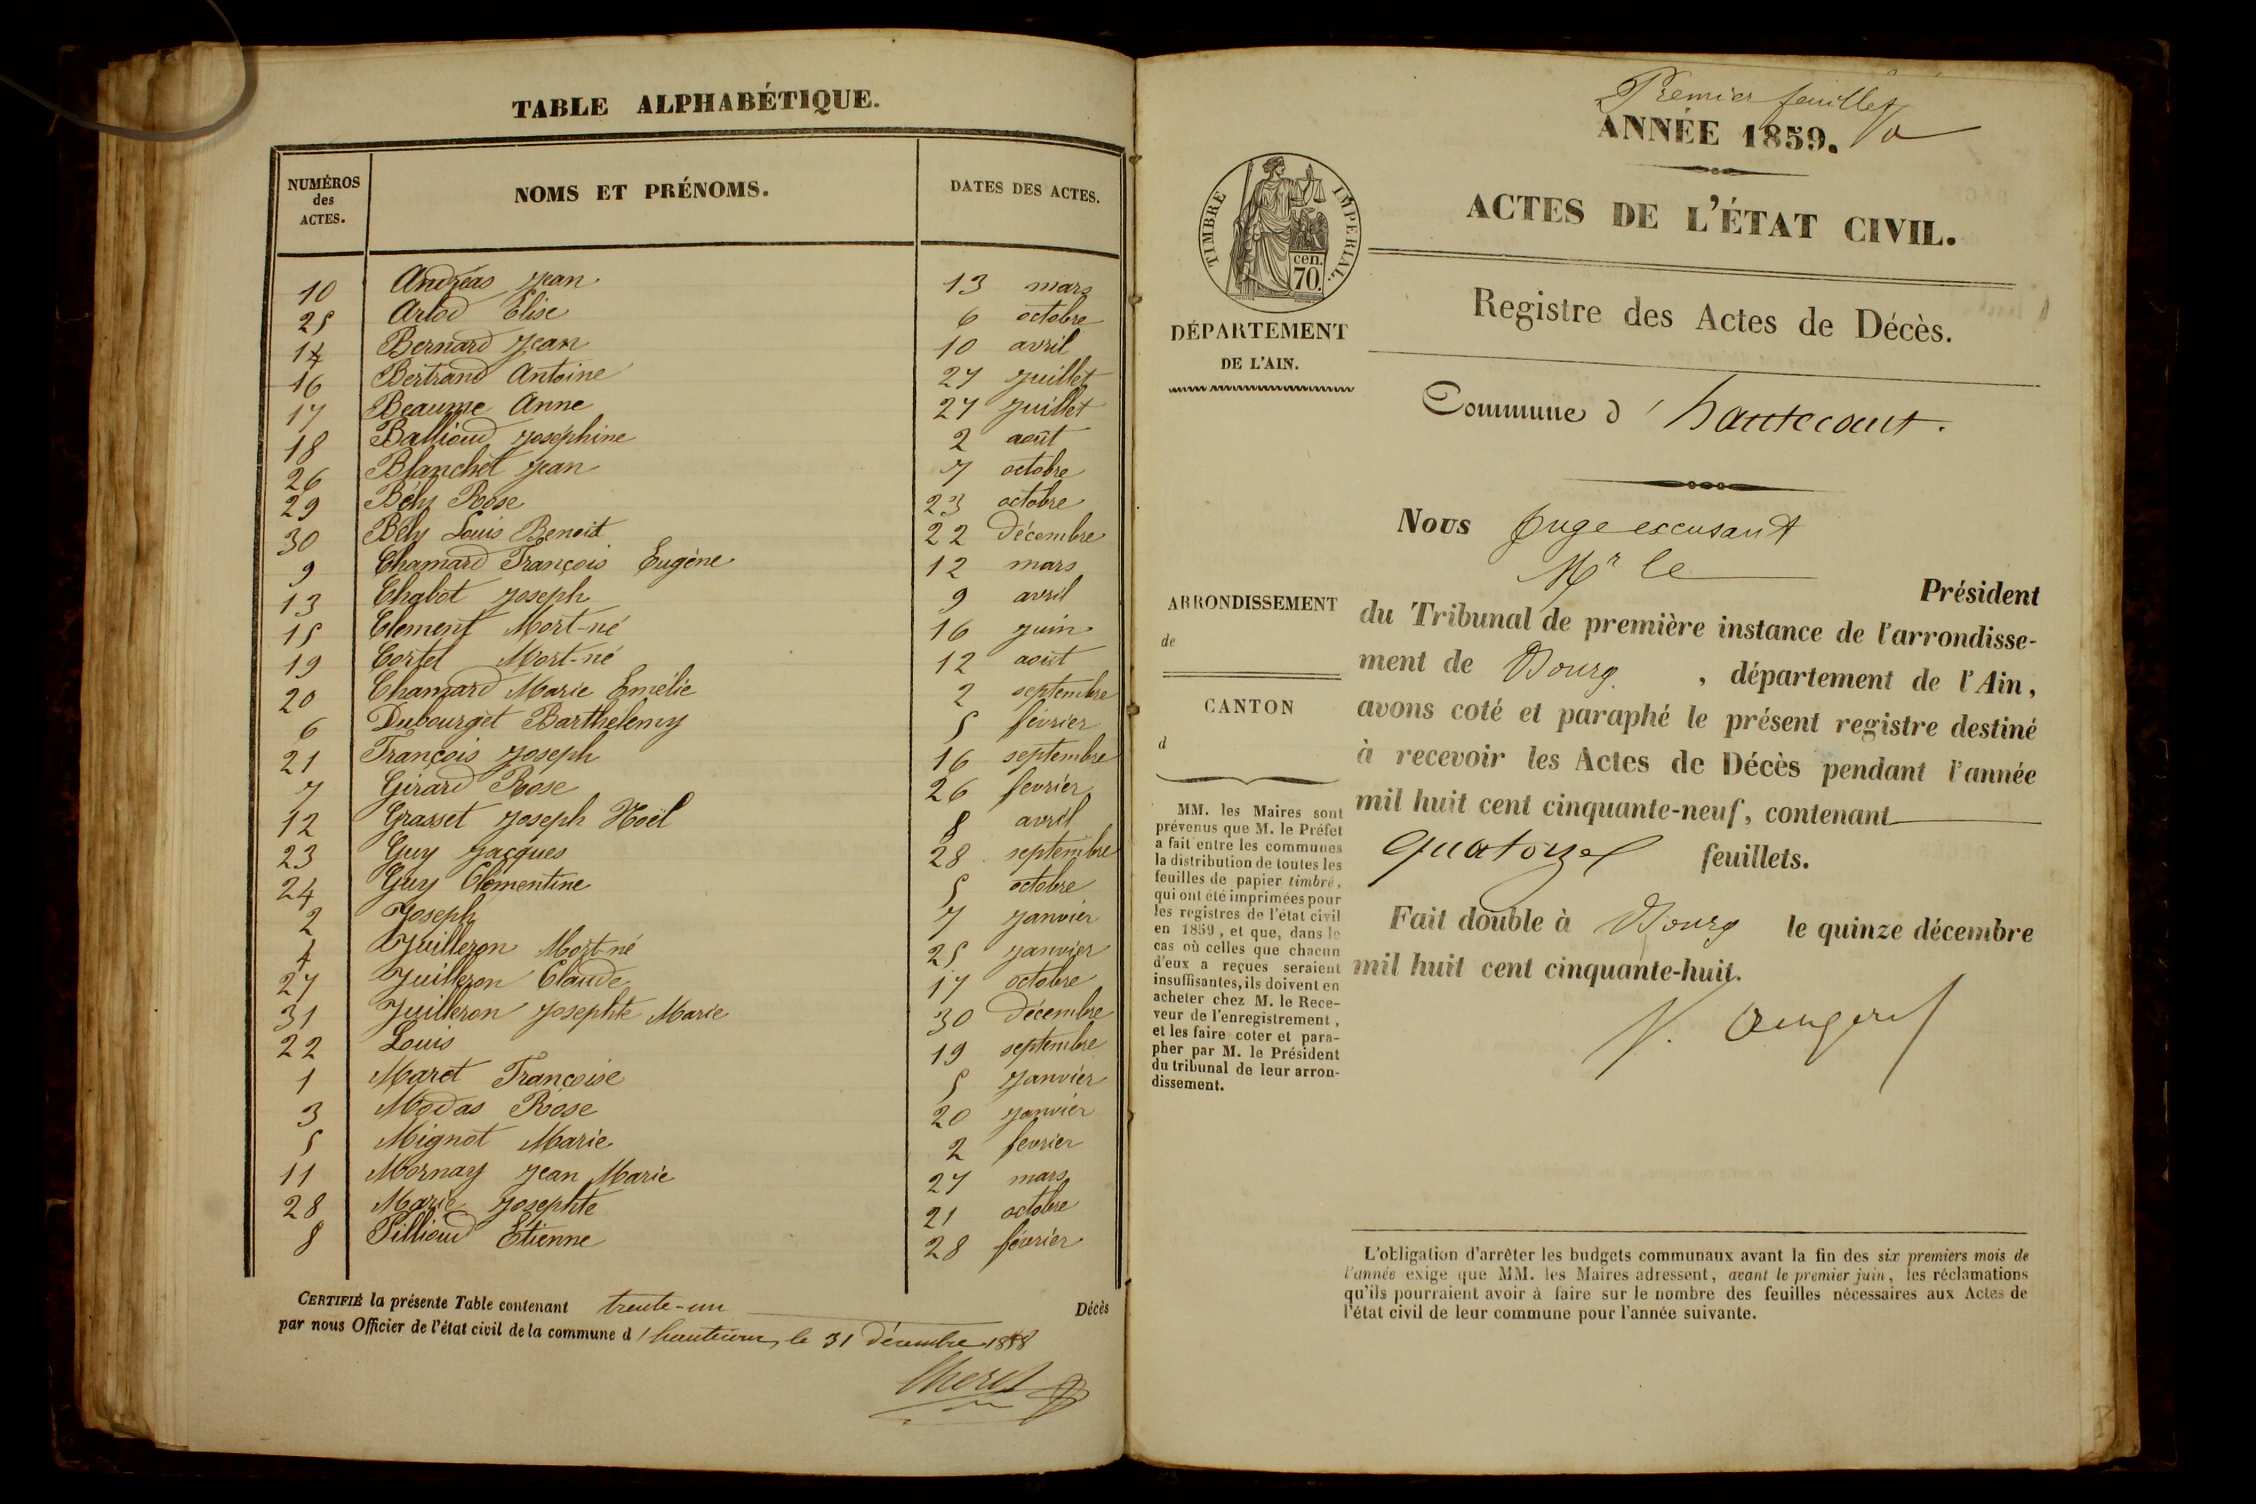 TABLE ALPHABÉTIQUE.
NUMÉROS des ACTES. NOMS ET PRÉNOMS. DATES DES ACTES.
10 Andréas Jean 13 mars
25 Arlod Elise 6 octobre
14 Bernard Jean 10 avril
16 Bertrand Antoine 27 juillet
17 Beaume Anne 27 juillet
18 Ballioud Joséphine 2 août
26 Blanchet Jean 7 octobre
29 Bély Rose 23 octobre
30 Bély Louis Benoit 22 décembre
9 Chamard François Eugène 12 mars
13 Chabot Joseph 9 avril
15 Clement Mort-né 16 juin
19 Cortel Mort-né 12 août
20 Chamard Marie Emélie 2 septembre
6 Dubourget Barthélemy 5 février
21 François Joseph 16 septembre
7 Girard Rose 26 février
12 Grasset Joseph Noël 8 avril
23 Guy Jacques 28 septembre
24 Guy Clémentine 5 octobre
2 Joseph 7 janvier
4 Juilleron Mort-né 25 janvier
27 Juilleron Claude 17 octobre
31 Juilleron Josephte Marie 30 décembre
22 Louis 19 septembre
1 Maret Françoise 5 janvier
3 Modas Rose 20 janvier
5 Mignot Marie 2 février
11 Mornay Jean Marie 27 mars
28 Marie Josephte 21 octobre
8 Pillioud Etienne 28 février
CERTIFIÉ la présente Table contenant trente-un Décès
par nous Officier de l'état civil de la commune d'hautecour, le 31 décembre 1858
Premier feuillet
ANNÉE 1859.
ACTES DE L'ÉTAT CIVIL.
TIMBRE IMPERIAL.
cen.
70.
DÉPARTEMENT
DE L'AIN.
Registre des Actes de Décès.
Commune d'hautecourt.
Nous Juge excusant
Mr le Président
du Tribunal de première instance de l'arrondisse-
ment de Bourg, département de l'Ain,
avons coté et paraphé le présent registre destiné
à recevoir les Actes de Décès pendant l'année
mil huit cent cinquante-neuf, contenant
quatorze feuillets.
Fait double à Bourg le quinze décembre
mil huit cent cinquante-huit.
ARRONDISSEMENT
de
CANTON
d
MM. les Maires sont
prévenus que M. le Préfet
a fait entre les communes
la distribution de toutes les
feuilles de papier timbré,
qui ont été imprimées pour
les registres de l'état civil
en 1859, et que, dans le
cas où celles que chacun
d'eux a reçues seraient
insuffisantes, ils doivent en
acheter chez M. le Rece-
veur de l'enregistrement,
et les faire coter et para-
pher par M. le Président
du tribunal de leur arron-
dissement.
L'obligation d'arrêter les budgets communaux avant la fin des six premiers mois de
l'année exige que MM. les Maires adressent, avant le premier juin, les réclamations
qu'ils pourraient avoir à faire sur le nombre des feuilles nécessaires aux Actes de
l'état civil de leur commune pour l'année suivante.